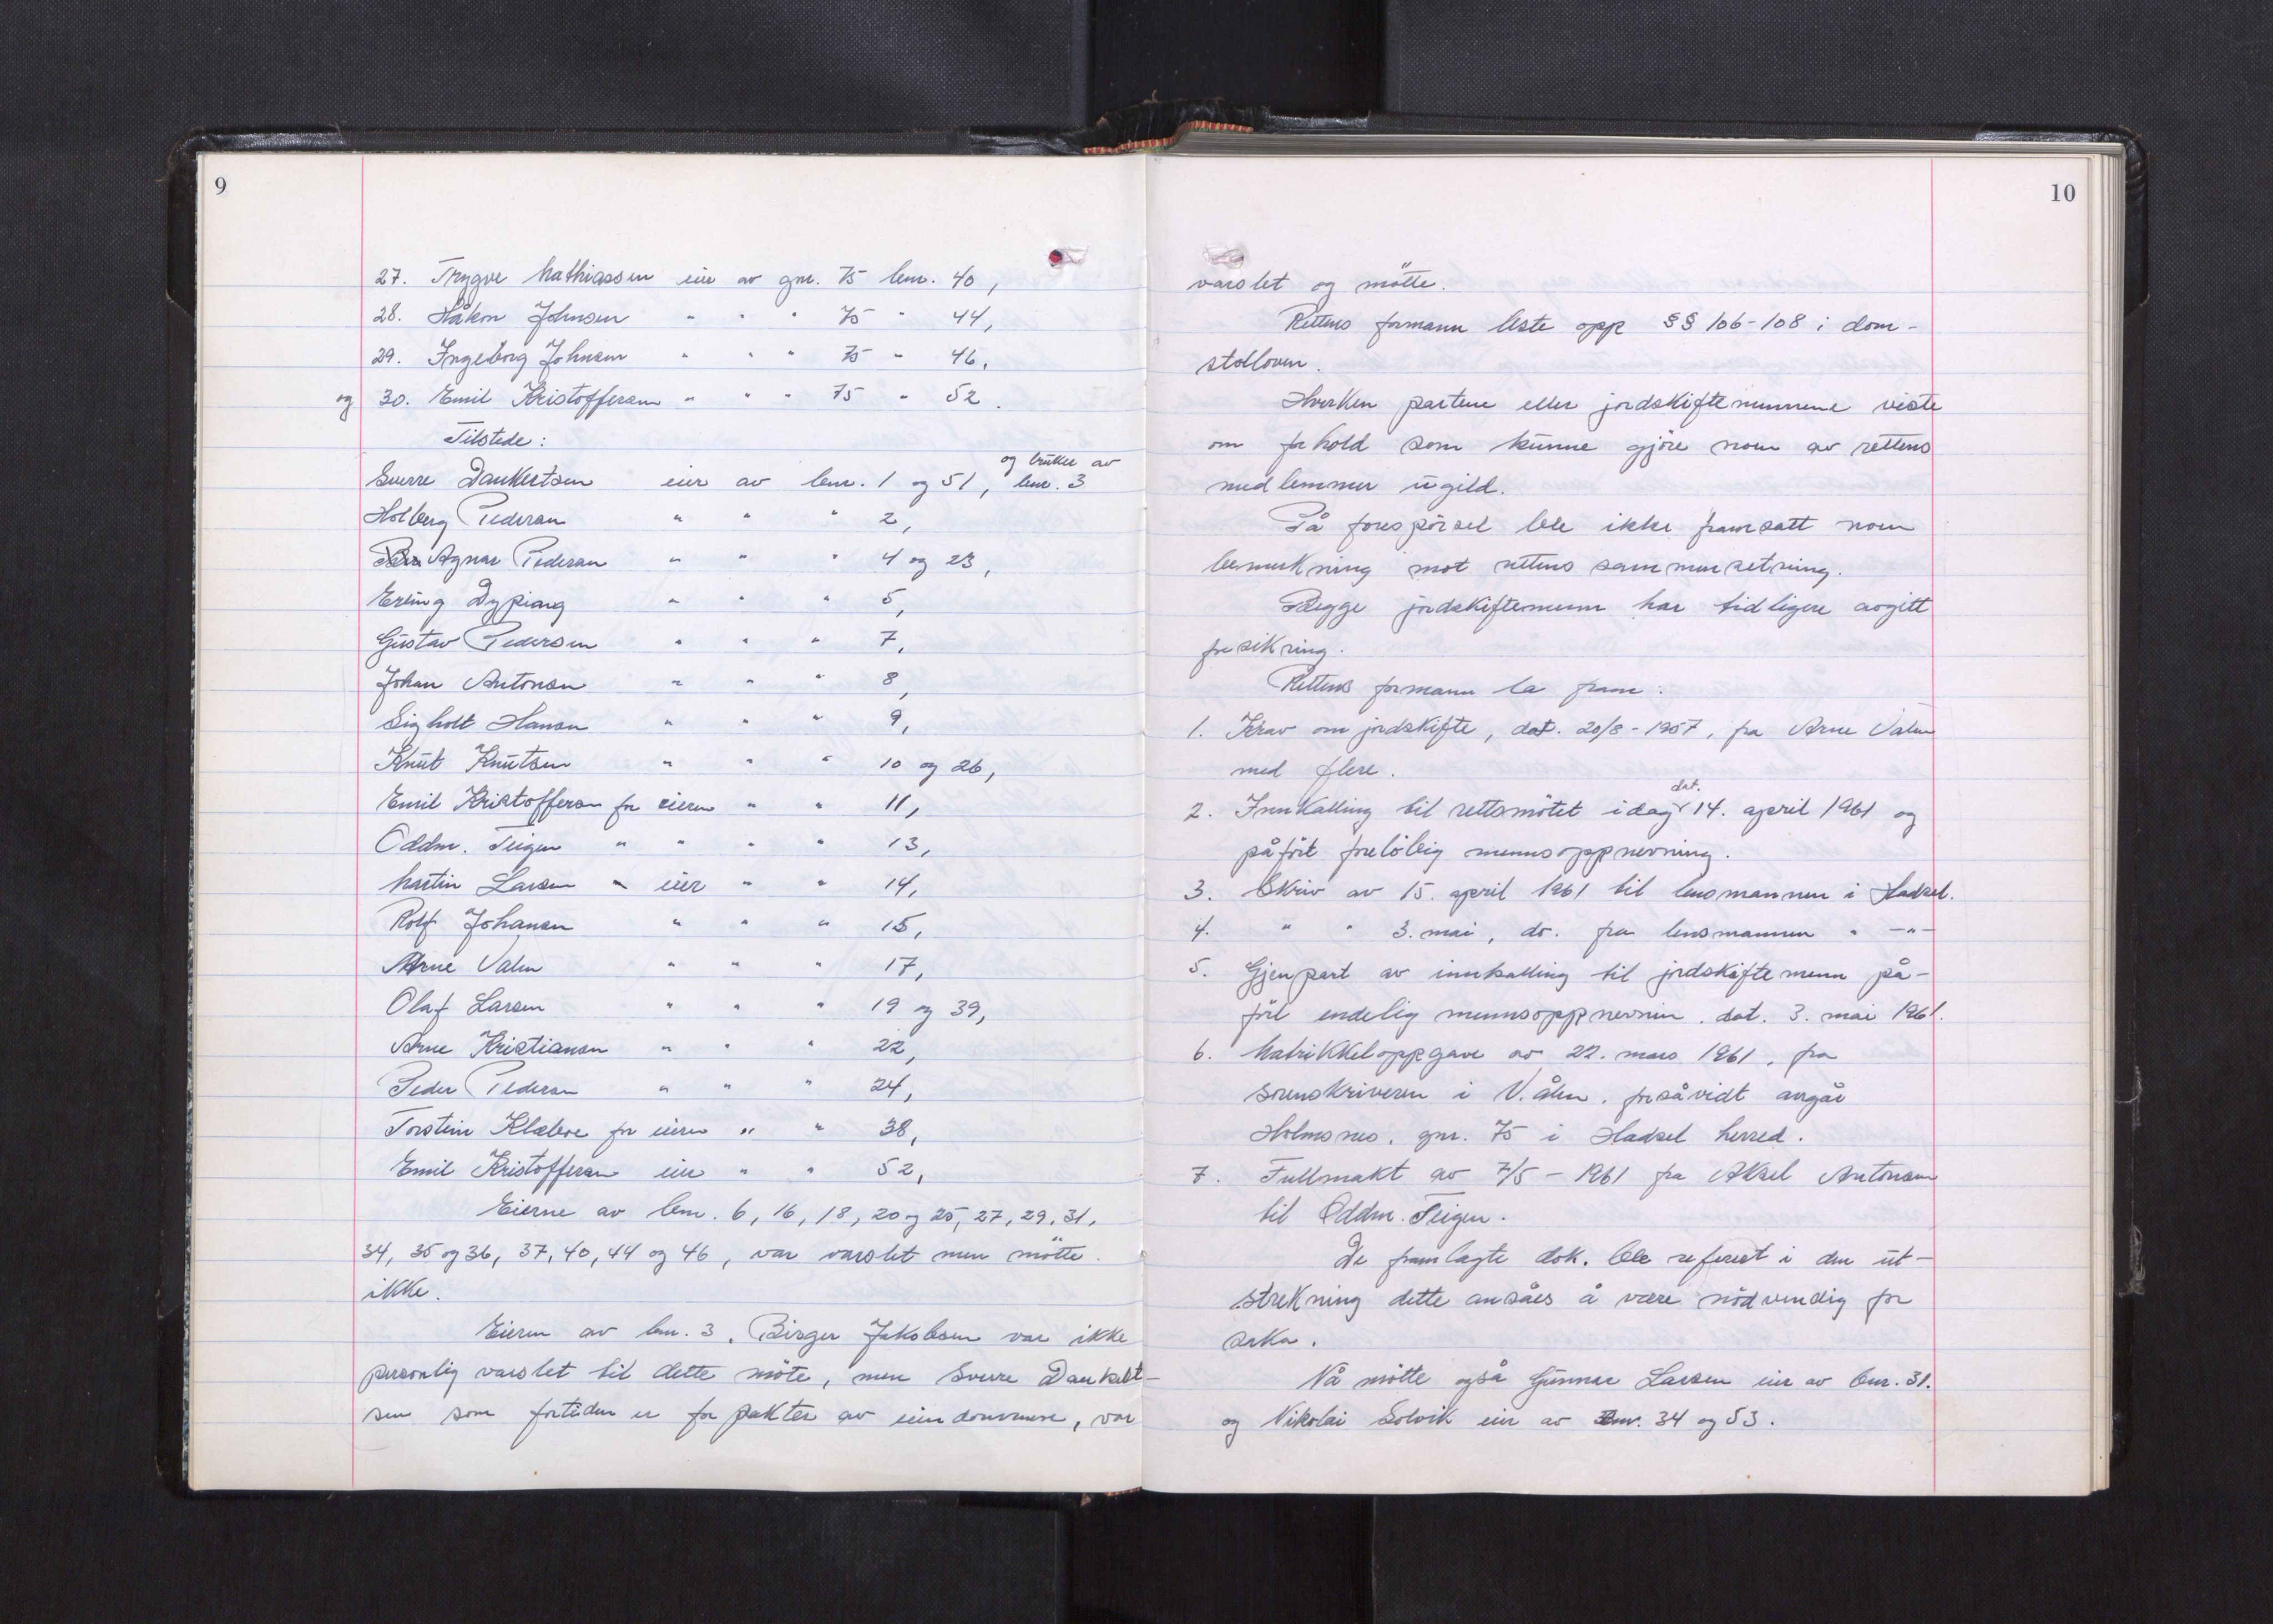 9
27. Trygve Mathiassen eier av gnr. 75 bnr. 40,
28. Håkon Johnsen " " " 75 " 44,
29. Ingeborg Johnsen " " " 75 " 46,
og 30. Emil Kristoffersen " " " 75 " 52.
Tilstede:
og bruker av
Sverre Dankertsen eier av bnr. 1 og 51, bnr. 3
Holberg Pedersen " " " 2,
Agnar Pedersen " " " 4 og 23,
Erling Dyping " " " 5,
Gustav Pedersen " " " 7,
Johan Antonsen " " " 8,
Sigholt Hansen " " " 9,
Knut Knutsen " " " 10 og 26,
Emil Kristoffersen for eieren " " 11,
Oddm. Teigen " " " " 13,
Martin Larsen " eier " " 14,
Rolf Johansen " " " 15,
Arne Valen " " " 17,
Olaf Larsen " " " 19 og 39,
Arne Kristiansen " " " 22,
Peder Pedersen " " " 24,
Torstein Klæboe for eieren " " 38,
Emil Kristoffersen eier " " 52,
Eierne av bnr. 6, 16, 18, 20 og 25, 27, 29, 31,
34, 35 og 36, 37, 40, 44 og 46, var varslet men møtte
ikke.
Eieren av bnr. 3, Birger Jakobsen var ikke
personlig varslet til dette møte, men Sverre Dankert-
sen som fortiden er forpakter av eiendommene, var
10
varslet og møtte.
Rettens formann leste opp §§ 106-108 i dom-
stolloven.
Hverken partene eller jordskiftemennene viste
om forhold som kunne gjøre noen av rettens
medlemmer ugild.
På forespørsel ble ikke framsatt noen
bemerkning mot rettens sammensetning.
Begge jordskiftemenn har tidligere avgitt
forsikring.
Rettens formann la fram:
1. Krav om jordskifte, dat. 20/8-1957, fra Arne Valen
med flere.
dat.
2. Innkalling til rettsmøtet idag 14. april 1961 og
påført foreløbig mennsoppnevning.
3. Skriv av 15. april 1961 til lensmannen i Hadsel.
4. " " 3. mai, do. fra lensmannen " -"-
5. Gjenpart av innkalling til jordskiftemenn på-
ført endelig mennsoppnevnin. dat. 3. mai 1961.
6. Matrikkeloppgave av 22. mars 1961, fra
sorenskriveren i V.ålen, forsåvidt angår
Holmsnes, gnr. 75 i Hadsel herred.
7. Fullmakt av 7/5-1961 fra Aksel Antonsen
til Oddm. Teigen.
De framlagte dok. ble referert i den ut-
strekning dette ansåes å være nødvendig for
saka.
Nå møtte også Gunnar Larsen eier av bnr. 31.
og Nikolai Solvik eier av bnr. 34 og 53.